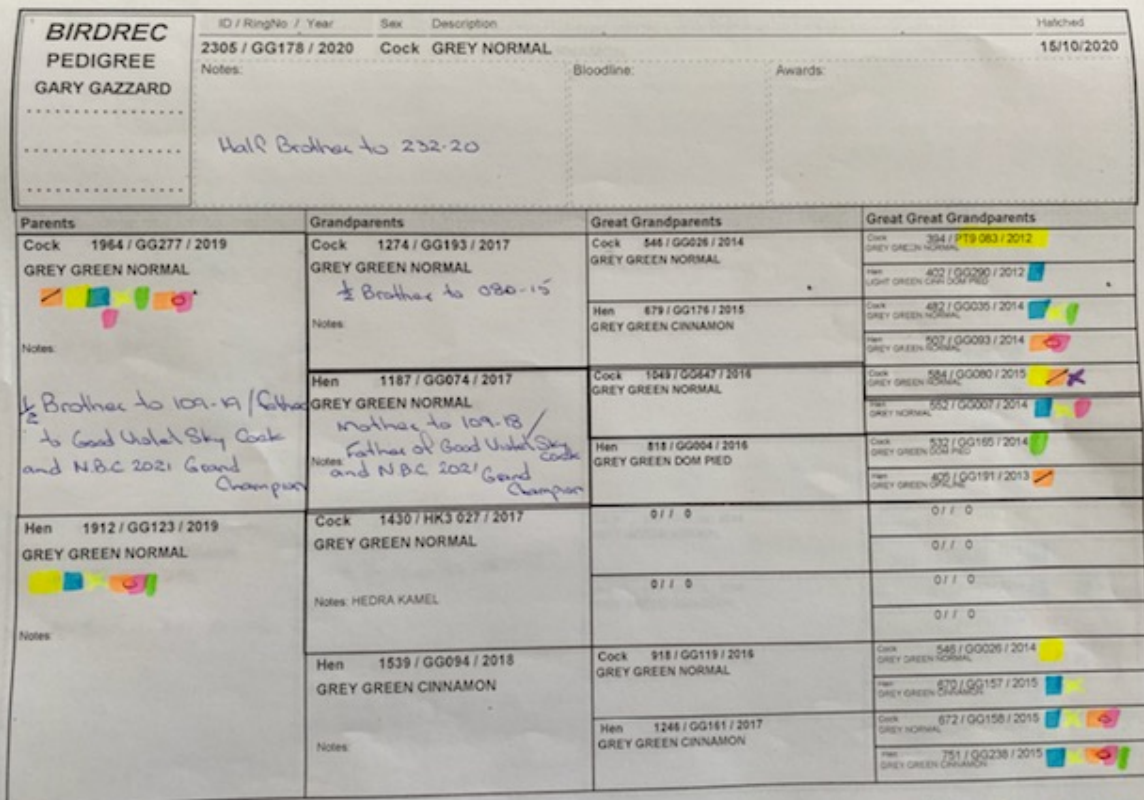 BIRDREC
PEDIGREE
GARY GAZZARD
ID / RingNo / Year Sex Description Hatched
2305 / GG178 / 2020 Cock GREY NORMAL 15/10/2020
Notes: Bloodline: Awards:
Half Brother to 232-20
Parents
Cock 1964 / GG277 / 2019
GREY GREEN NORMAL
Notes:
½ Brother to 109-19 / Father
to Good Violet Sky Cock
and N.B.C 2021 Grand
Champion
Hen 1912 / GG123 / 2019
GREY GREEN NORMAL
Notes:
Grandparents
Cock 1274 / GG193 / 2017
GREY GREEN NORMAL
½ Brother to 080-15
Notes:
Hen 1187 / GG074 / 2017
GREY GREEN NORMAL
Mother to 109-18 /
Father of Good Violet Sky
Cock
Notes:
and N.B.C 2021 Grand
Champion
Cock 1430 / HK3 027 / 2017
GREY GREEN NORMAL
Notes: HEDRA KAMEL
Hen 1539 / GG094 / 2018
GREY GREEN CINNAMON
Notes:
Great Grandparents
Cock 546 / GG026 / 2014
GREY GREEN NORMAL
Hen 679 / GG176 / 2015
GREY GREEN CINNAMON
Cock 1049 / GG647 / 2016
GREY GREEN NORMAL
Hen 818 / GG004 / 2016
GREY GREEN DOM PIED
0 / / 0
0 / / 0
Cock 918 / GG119 / 2016
GREY GREEN NORMAL
Hen 1246 / GG161 / 2017
GREY GREEN CINNAMON
Great Great Grandparents
Cock 394 / PT9 083 / 2012
GREY GREEN NORMAL
Hen 402 / GG290 / 2012
LIGHT GREEN CINN DOM PIED
Cock 482 / GG035 / 2014
GREY GREEN NORMAL
Hen 507 / GG093 / 2014
GREY GREEN NORMAL
Cock 584 / GG080 / 2015
GREY GREEN NORMAL
Hen 552 / GG007 / 2014
GREY NORMAL
Cock 532 / GG165 / 2014
GREY GREEN DOM PIED
Hen 405 / GG191 / 2013
GREY GREEN OPALINE
0 / / 0
0 / / 0
0 / / 0
0 / / 0
Cock 546 / GG026 / 2014
GREY GREEN NORMAL
Hen 670 / GG157 / 2015
GREY GREEN CINNAMON
Cock 672 / GG158 / 2015
GREY NORMAL
Hen 751 / GG238 / 2015
GREY GREEN CINNAMON